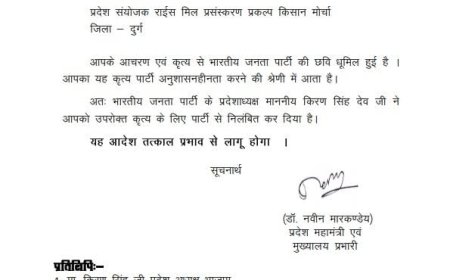 प्रदेश संयोजक राईस मिल प्रसंस्करण प्रकल्प किसान मोर्चा
जिला – दुर्ग
आपके आचरण एवं कृत्य से भारतीय जनता पार्टी की छवि धूमिल हुई है ।
आपका यह कृत्य पार्टी अनुशासनहीनता करने की श्रेणी में आता है।
अतः भारतीय जनता पार्टी के प्रदेशाध्यक्ष माननीय किरण सिंह देव जी ने
आपको उपरोक्त कृत्य के लिए पार्टी से निलंबित कर दिया है।
यह आदेश तत्काल प्रभाव से लागू होगा ।
सूचनार्थ
(डॉ. नवीन मारकण्डेय)
प्रदेश महामंत्री एवं
मुख्यालय प्रभारी
प्रतिलिपिः–
मा. किरण सिंह जी प्रदेश अध्यक्ष भाजपा